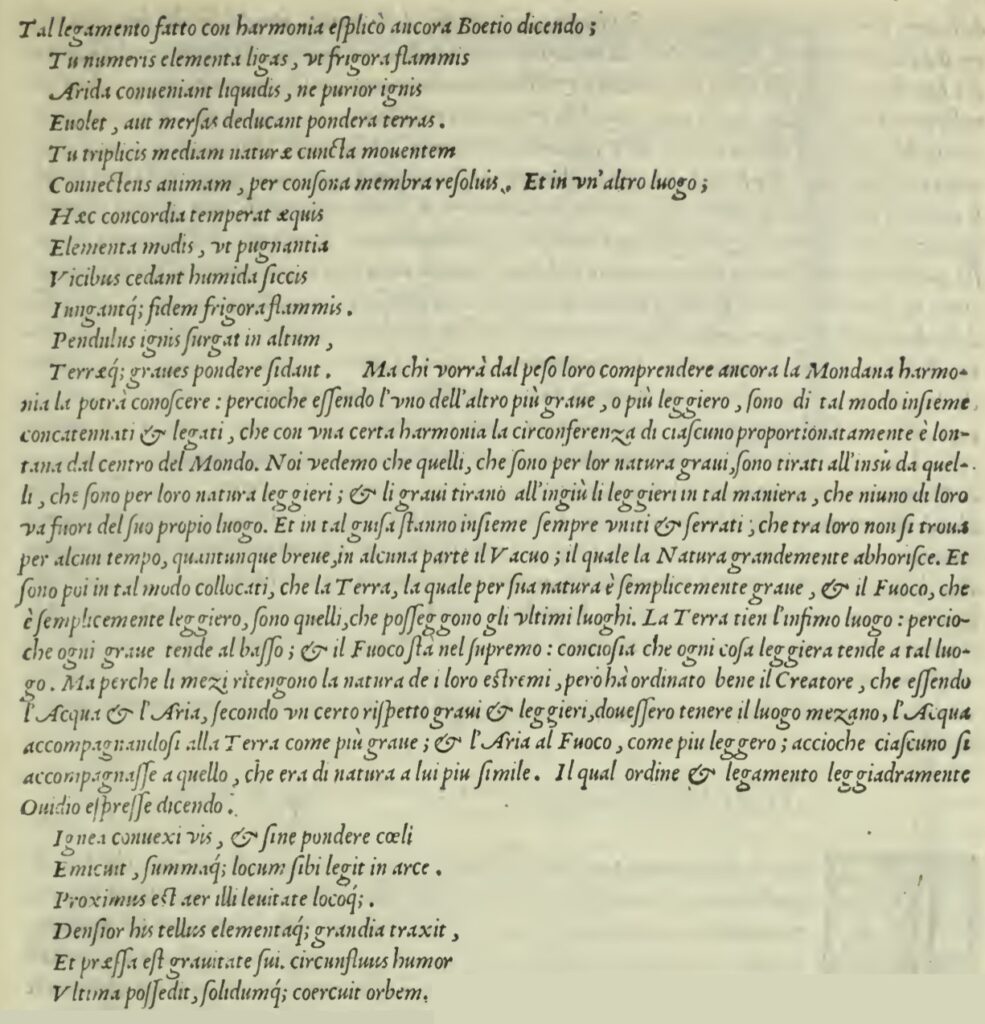 Tal legamento fatto con harmonia eſplicò ancora Boetio dicendo;
Tu numeris elementa ligas, vt frigora flammis
Arida conueniant liquidis, ne purior ignis
Euolet, aut merſas deducant pondera terras.
Tu triplicis mediam naturæ cuncta mouentem
Connectens animam, per conſona membra reſoluis. Et in vn'altro luogo;
Hæc concordia temperat æquis
Elementa modis, vt pugnantia
Vicibus cedant humida ſiccis
Iungantq́; fidem frigora flammis.
Pendulus ignis ſurgat in altum,
Terræq́; graues pondere ſidant. Ma chi vorrà dal peſo loro comprendere ancora la Mondana harmo-
nia la potrà conoſcere: percioche eſſendo l'vno dell'altro più graue, o più leggiero, ſono di tal modo inſieme
concatennati & legati, che con vna certa harmonia la circonferenza di ciaſcuno proportionatamente è lon-
tana dal centro del Mondo. Noi vedemo che quelli, che ſono per lor natura graui, ſono tirati all'insù da quel-
li, che ſono per loro natura leggieri; & li graui tirano all'ingiù li leggieri in tal maniera, che niuno di loro
va fuori del ſuo propio luogo. Et in tal guiſa ſtanno inſieme ſempre vniti & ſerrati, che tra loro non ſi troua
per alcun tempo, quantunque breue, in alcuna parte il Vacuo; il quale la Natura grandemente abhoriſce. Et
ſono poi in tal modo collocati, che la Terra, la quale per ſua natura è ſemplicemente graue, & il Fuoco, che
è ſemplicemente leggiero, ſono quelli, che poſſeggono gli vltimi luoghi. La Terra tien l'infimo luogo: percio-
che ogni graue tende al baſſo; & il Fuoco ſtà nel ſupremo: concioſia che ogni coſa leggiera tende a tal luo-
go. Ma perche li mezi ritengono la natura de i loro eſtremi, però hà ordinato bene il Creatore, che eſſendo
l'Acqua & l'Aria, ſecondo vn certo riſpetto graui & leggieri, doueſſero tenere il luogo mezano, l'Acqua
accompagnandoſi alla Terra come più graue; & l'Aria al Fuoco, come piu leggero; accioche ciaſcuno ſi
accompagnaſſe a quello, che era di natura a lui piu ſimile. Il qual ordine & legamento leggiadramente
Ouidio eſpreſſe dicendo.
Ignea conuexi vis, & ſine pondere cœli
Emicuit, ſummaq́; locum ſibi legit in arce.
Proximus eſt aer illi leuitate locoq́;.
Denſior his tellus elementaq́; grandia traxit,
Et præſſa eſt grauitate ſui. circunfluus humor
Vltima poſſedit, ſolidumq́; coercuit orbem.